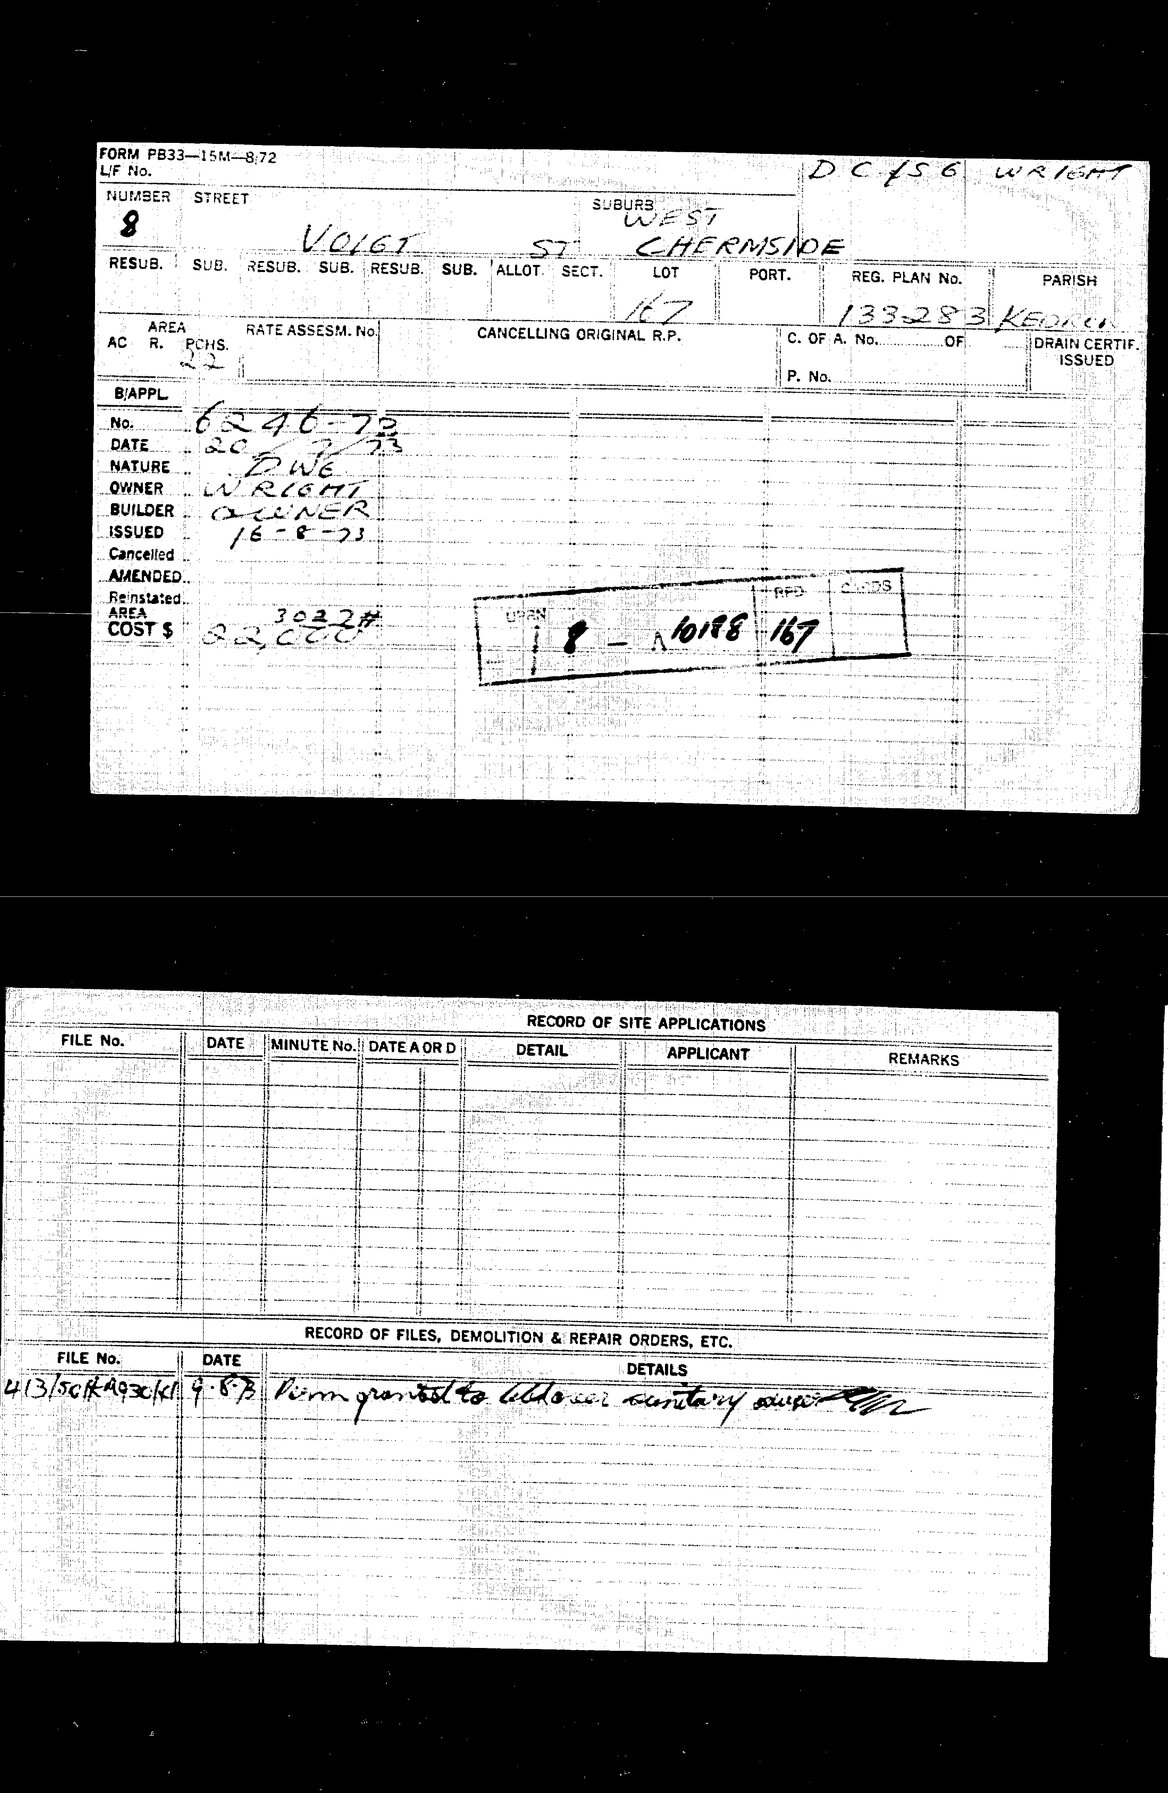 FORM PB33—15M—8/72
L/F No.
D C /5 6 WRIGHT
NUMBER STREET SUBURB
8 VOIGT ST WEST CHERMSIDE
RESUB. SUB. RESUB. SUB. RESUB. SUB. ALLOT. SECT. LOT PORT. REG. PLAN No. PARISH
167 133283
AREA RATE ASSESM. No. CANCELLING ORIGINAL R.P. C. OF A. No. OF DRAIN CERTIF.
AC R. PCHS. ISSUED
22
P. No.
B/APPL.
No. 6246-73
DATE 20/7/73
NATURE DWG
OWNER WRIGHT
BUILDER OWNER
ISSUED 16-8-73
Cancelled
AMENDED
Reinstated
AREA 3022#
COST $ 22,000
UPRN RPD CARDS
8 — A 10198 167
RECORD OF SITE APPLICATIONS
FILE No. DATE MINUTE No. DATE A OR D DETAIL APPLICANT REMARKS
RECORD OF FILES, DEMOLITION & REPAIR ORDERS, ETC.
FILE No. DATE DETAILS
9.8.73 Perm granted to build over sanitary sewer